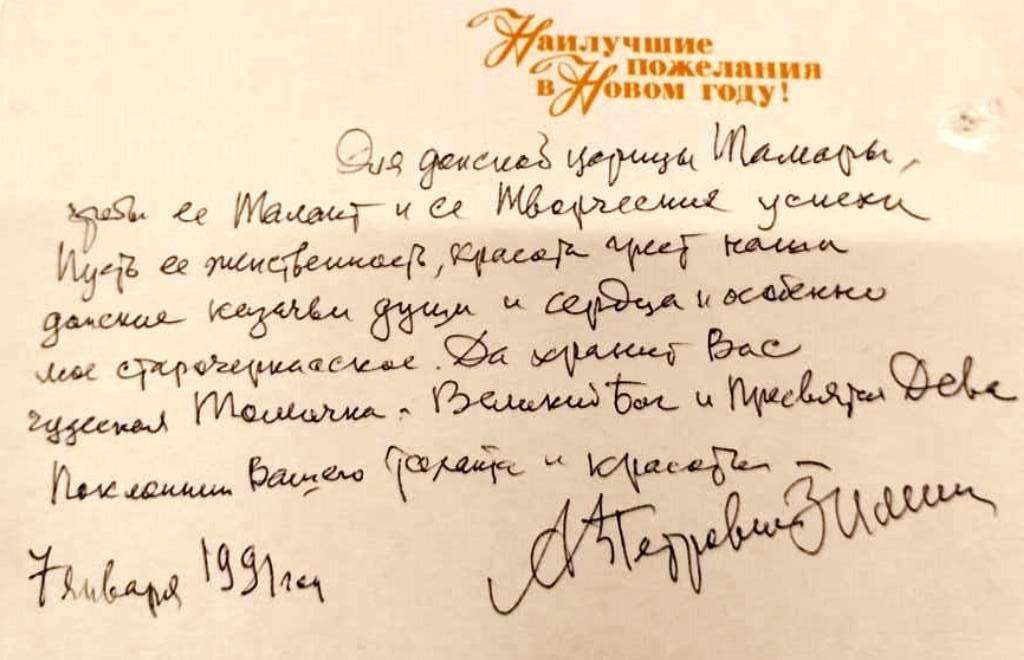 Наилучшие
пожелания
в Новом году!
Для донской царицы Тамары,
чтобы ее Талант и ее Творческие успехи
Пусть ее женственность, красота греет наши
донские казачьи души и сердца и особенно
мое старочеркасское. Да хранит Вас
чудесная Томочка - Великий Бог и Пресвятая Дева
Поклонник Вашего Таланта и красоты –
Петрович
7 января 1991 год